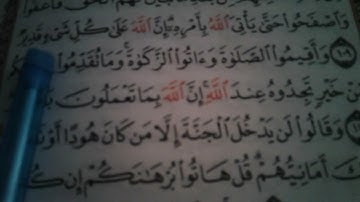 فَٱعْفُوا۟
وَٱصْفَحُوا۟ حَتَّىٰ يَأْتِىَ ٱللَّهُ بِأَمْرِهِۦٓ إِنَّ ٱللَّهَ عَلَىٰ كُلِّ شَىْءٍ قَدِيرٌ
١٠٩ وَأَقِيمُوا۟ ٱلصَّلَوٰةَ وَءَاتُوا۟ ٱلزَّكَوٰةَ وَمَا تُقَدِّمُوا۟
مِّنْ خَيْرٍ تَجِدُوهُ عِندَ ٱللَّهِ إِنَّ ٱللَّهَ بِمَا تَعْمَلُونَ
وَقَالُوا۟ لَن يَدْخُلَ ٱلْجَنَّةَ إِلَّا مَن كَانَ هُودًا أَوْ
أَمَانِيُّهُمْ قُلْ هَاتُوا۟ بُرْهَٰنَكُمْ إِن